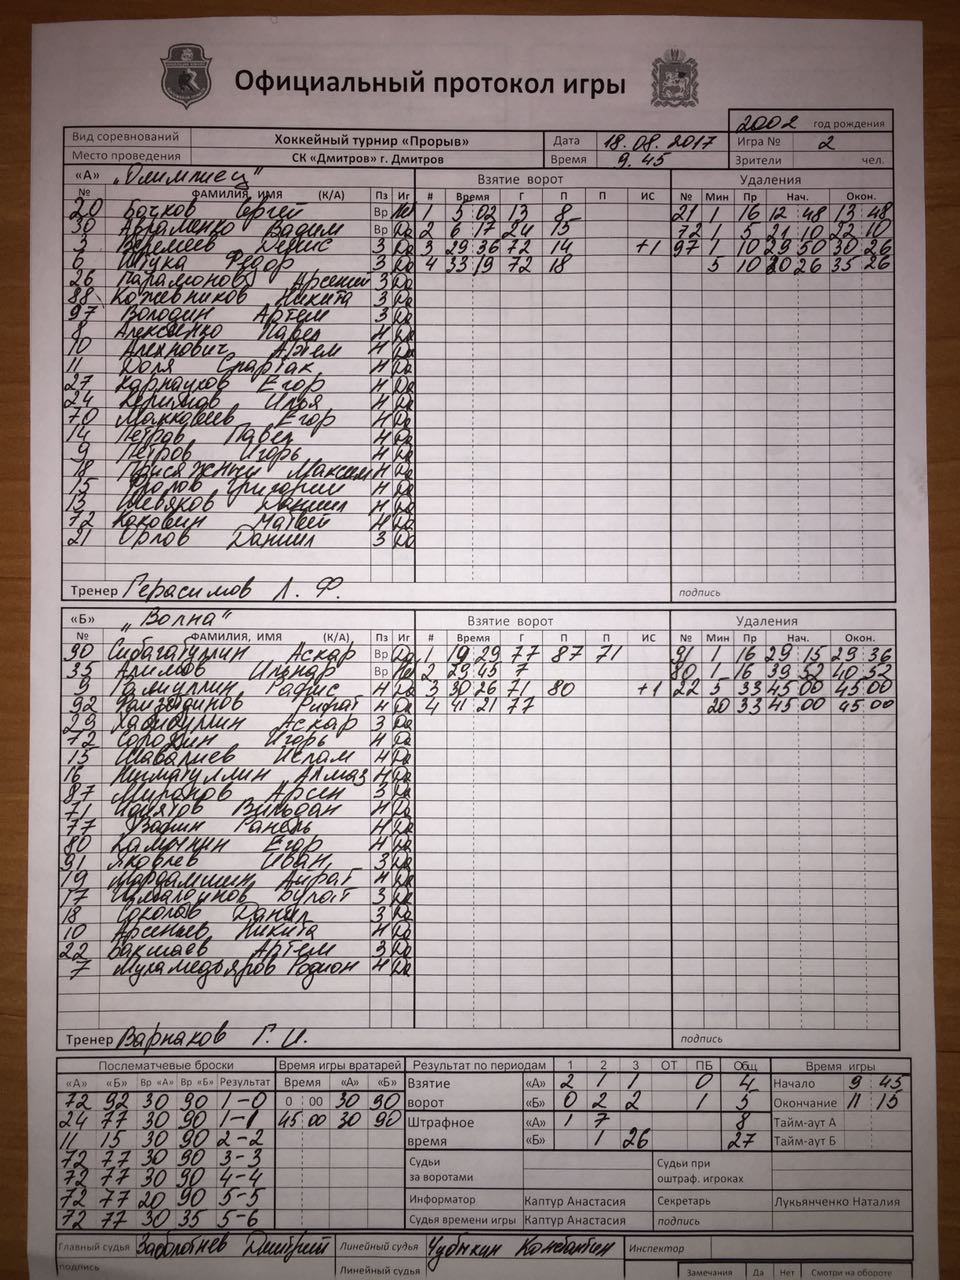 Официальный протокол игры
2002 год рождения
Вид соревнований Хоккейный турнир «Прорыв» Дата 18.08.2017 Игра № 2
Место проведения СК «Дмитров» г. Дмитров Время 9.45 Зрители чел.
«А» „Олимпиец" Взятие ворот Удаления
№ ФАМИЛИЯ, ИМЯ (К/А) Пз Иг # Время Г П П ИС № Мин Пр Нач. Окон.
20 Бачков Сергей Вр 1 5 02 13 8 21 1 16 12 48 13 48
30 Авраменко Вадим Вр Да 2 6 17 24 15 72 1 5 21 10 22 10
3 Веремеев Денис З Да 3 29 36 72 14 +1 97 1 10 29 50 30 26
6 Штука Федор З Да 4 33 19 72 18 5 10 30 26 35 26
26 Парамонов Арсений З Да
88 Кожевников Никита З Да
97 Володин Артем З Да
8 Алексеенко Павел Н Да
10 Алехнович Артем Н Да
11 Доля Спартак Н Да
27 Карнаухов Егор Н Да
24 Илья Н Да
70 Маккавеев Егор Н Да
14 Петров Павел Н Да
9 Петров Игорь Н Да
18 Присяжный Максим Н Да
15 Фролов Григорий Н Да
13 Шевяков Даниил Н Да
72 Каковин Матвей Н Да
21 Орлов Даниил З Да
Тренер Герасимов Л. Ф. подпись
«Б» „Волна" Взятие ворот Удаления
№ ФАМИЛИЯ, ИМЯ (К/А) Пз Иг # Время Г П П ИС № Мин Пр Нач. Окон.
90 Сибагатуллин Аскар Вр Да 1 19 29 77 87 71 91 1 16 29 15 29 36
35 Алимов Ильнар Вр 2 29 45 7 80 1 16 39 52 40 52
9 Галиуллин Рафис Н Да 3 30 26 71 80 +1 22 5 33 45 00 45 00
92 Рифат Н Да 4 41 21 77 20 33 45 00 45 00
29 Хабибуллин Аскар З Да
72 Сорокин Игорь Н Да
15 Шавалиев Ислам Н Да
16 Нигматуллин Алмаз Н Да
87 Миранов Арсен З Да
71 Вильдан Н Да
77 Вафин Ранель Н Да
80 Камынин Егор Н Да
91 Яковлев Иван З Да
19 Мардамшин Айрат Н Да
17 Булат З Да
18 Соколов Данил З Да
10 Арсеньев Никита Н Да
22 Бакшаев Артем З Да
7 Мухамедьяров Родион Н Да
Тренер Варнаков Г. И. подпись
Послематчевые броски Время игры вратарей Результат по периодам 1 2 3 ОТ ПБ Общ. Время игры
«А» «Б» Вр «А» Вр «Б» Результат Время «А» «Б» Взятие «А» 2 1 1 0 4 Начало 9 45
72 92 30 90 1-0 0 00 30 90 ворот «Б» 0 2 2 1 5 Окончание 11 15
24 77 30 90 1-1 45 00 30 90 Штрафное «А» 1 7 8 Тайм-аут А
11 15 30 90 2-2 время «Б» 1 26 27 Тайм-аут Б
72 77 30 90 3-3 Судьи за воротами Судьи при оштраф. игроках
72 77 30 90 4-4
72 77 20 90 5-5 Информатор Каптур Анастасия Секретарь Лукьянченко Наталия
72 77 30 35 5-6 Судья времени игры Каптур Анастасия подпись
Главный судья Заболотнев Дмитрий Линейный судья Чубыкин Константин Инспектор
подпись Линейный судья Замечания Да Нет Смотри на обороте